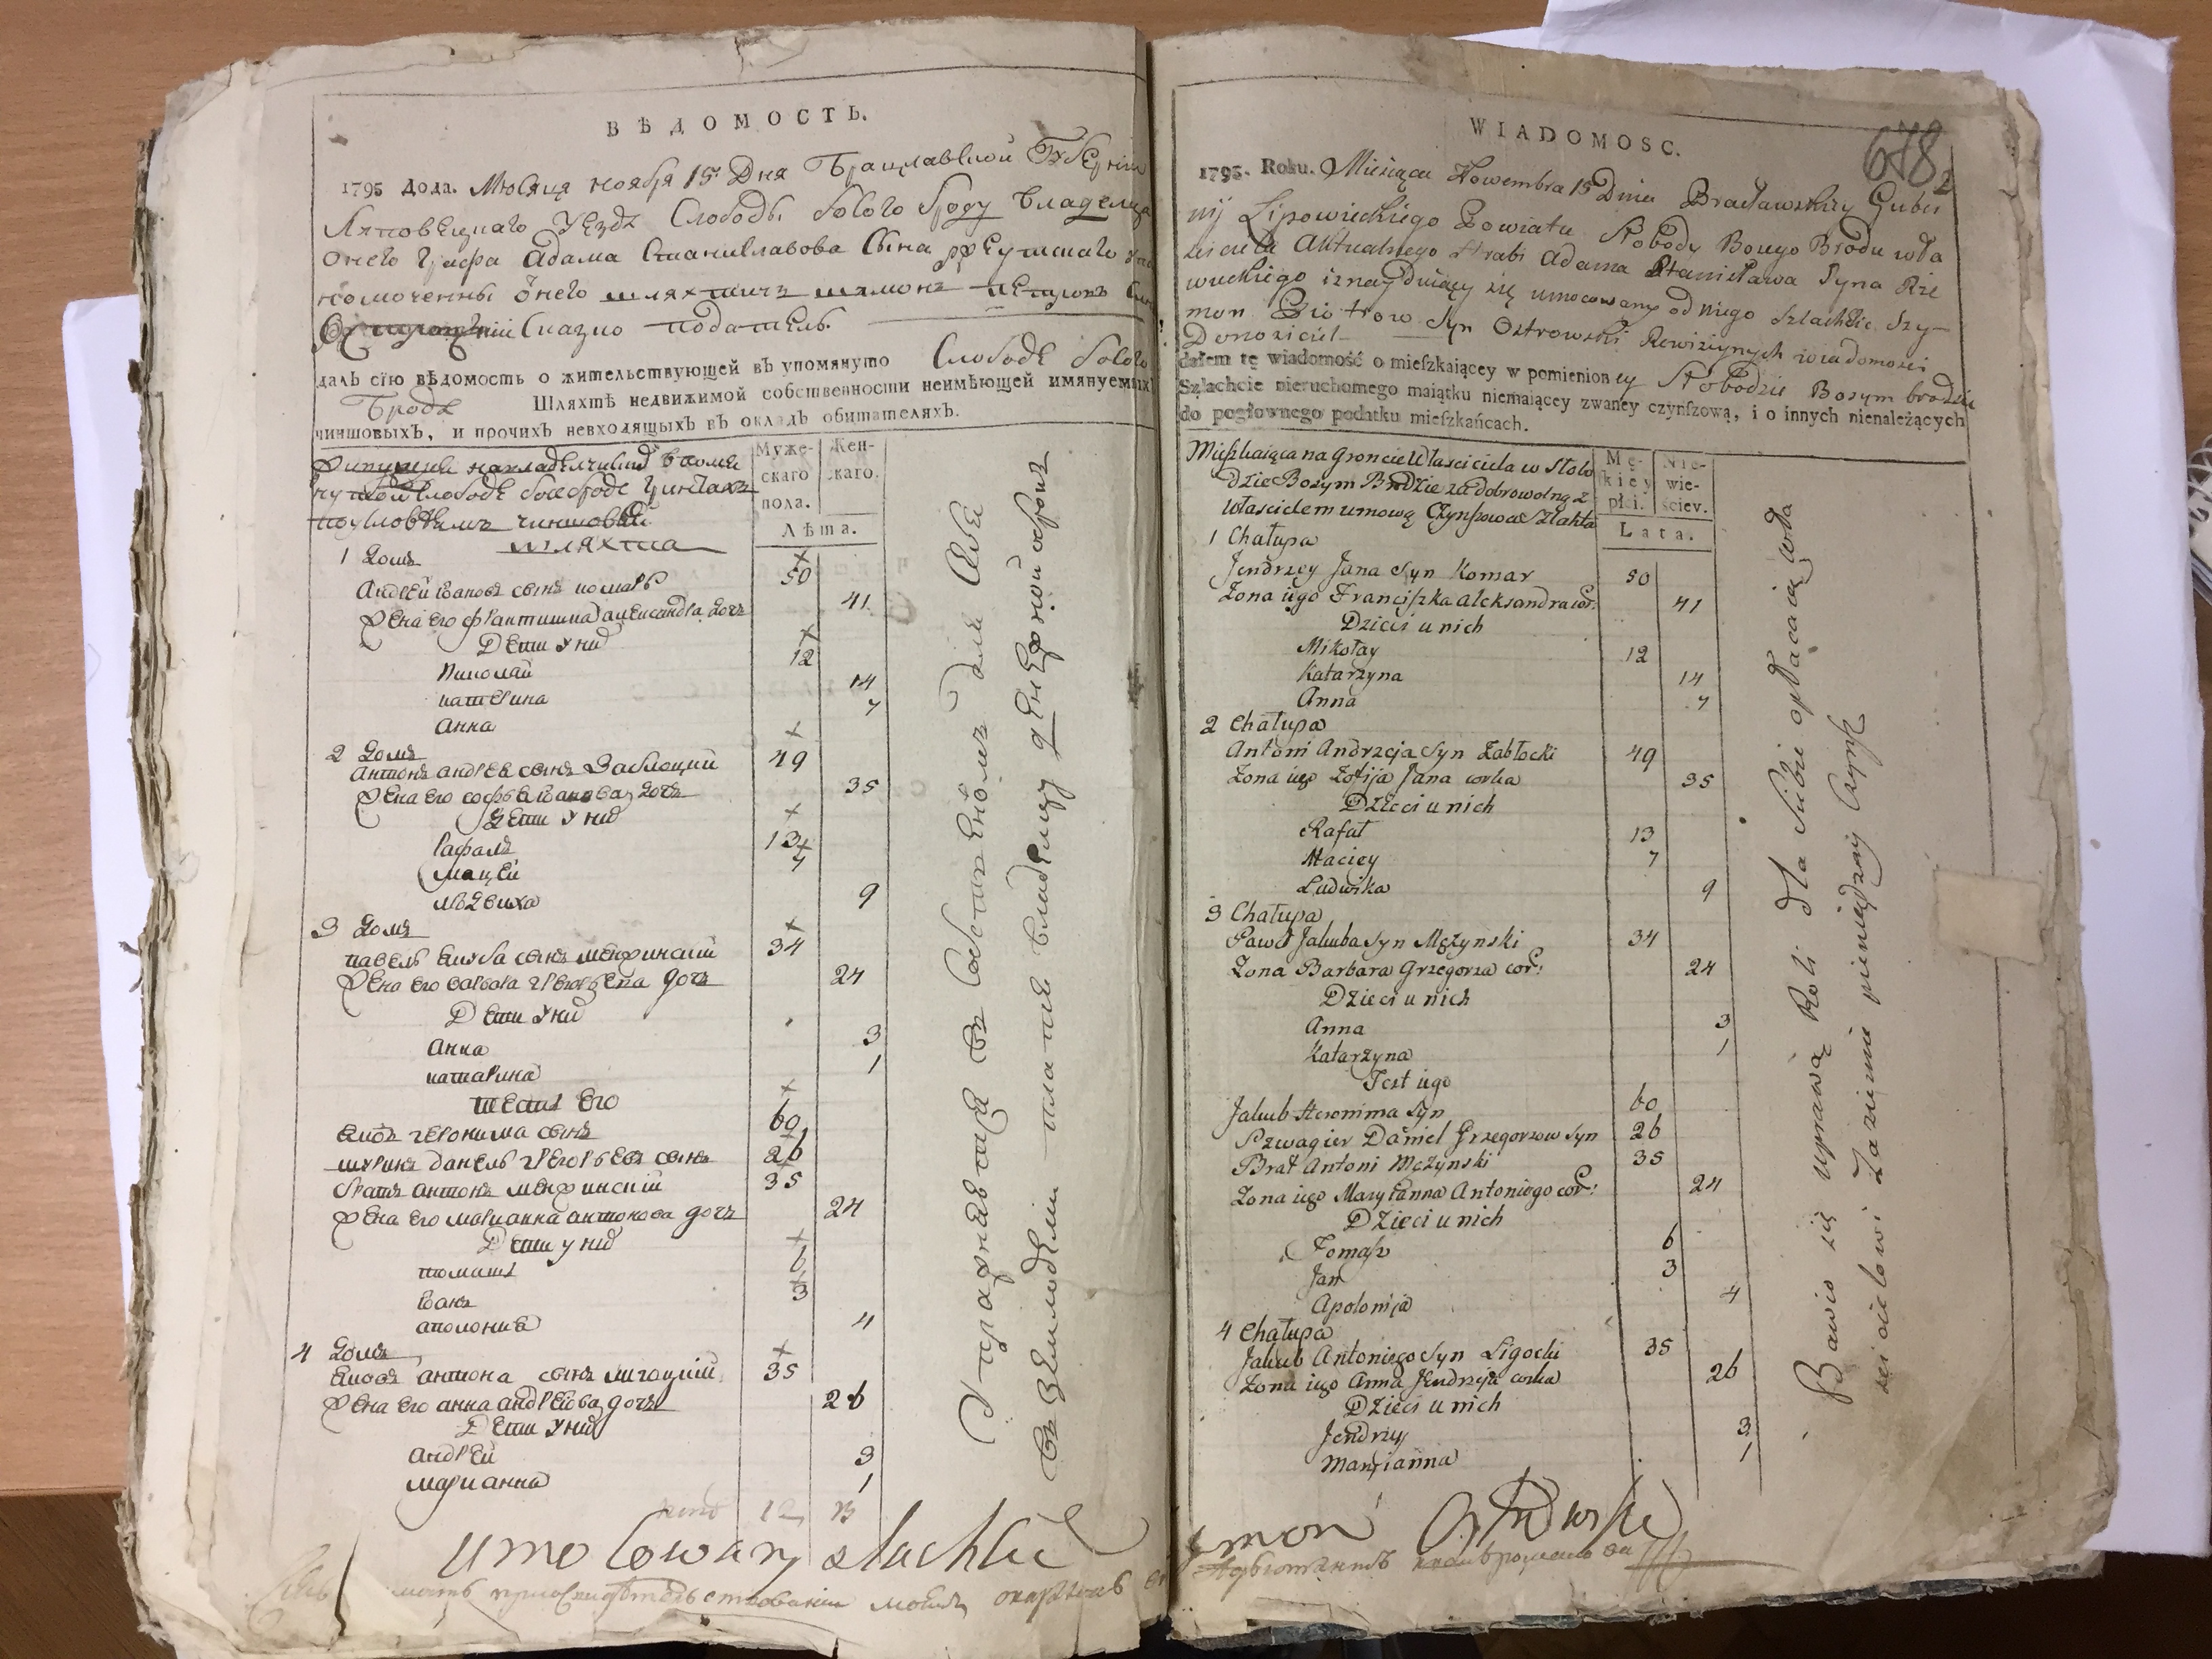 ВѢДОМОСТЬ.
1795 года. Мѣсяца ноября 15 Дня Брацлавской Губерніи
Липовецкаго Уезда Слободы босого броду владелца
оного Графа Адама Станиславова Сына ржеутскаго
шляхтичъ шимонъ петровъ
Сказко податель.
далъ сїю вѣдомость о жительствующей въ упомянуто Слободе босого
Броде Шляхтѣ недвижимой собственности неимѣющей имянуемыхъ
чиншовыхъ, и прочихъ невходящыхъ въ окладъ обитателяхъ.
Муже- Жен-
скаго скаго.
пола.
Лѣта.
шляхта
1 Домъ
Андрей иванов сынъ комаръ 50
Жена его франтишка александра дочъ 41
Дети у них
Николай 12
катерина 14
Анна 7
2 Домъ
Антонъ андреев сынъ Заблоцкий 49
Жена его софья иванова дочъ 35
Дети у них
Рафалъ 13
Мацей 7
людвика 9
3 Домъ
павелъ якуба сынъ менжинский 34
Жена его варвара грегорьева дочъ 24
Дети у них
Анна 3
катарина 1
тесть его
якубъ геронима сынъ 60
шуринъ данель грегорьевъ сынъ 26
братъ антонъ менжинский 35
Жена его марианна антонова дочъ 24
Дети у них
томашъ 6
иванъ 3
аполония 4
4 Домъ
якубъ антона сынъ лигоцкий 35
Жена его анна андреева дочъ 26
Дети у них
андрей 3
марианна 1
12 13
umocowany szlachcic
WIADOMOSC.
678
1795. Roku. Miesiąca Nowembra 15 Dnia Bracławskiey Guber
nij Lipowieckiego Powiatu Słobody Bosego Brodu wła
sciciela Aktualnego Hrabi Adama Stanisława Syna Rze
wuckiego iznayduiący się umocowany od niego szlachcic Szy-
mon Piotrow Syn Ostrowski Rewizyinych wiadomosci
Donosiciel
dałem tę wiadomość o mieſzkaiącey w pomienioney Słobodzie Bosym brodzie
Szlachcie nieruchomego maiątku niemaiącey zwaney czynſzową, i o innych nienależących
do pogłownego podatku mieſzkańcach.
Mieszkaiąca na Groncie Własciciela w Słobo Mę- Nie-
dzie Bosym Brodzie za dobrowolną z kiey wie-
Własicielem umową Czynſzowa Szlachta płci. ściey.
Lata.
1 Chałupa
Jendrzey Jana Syn Komar 50
Żona iego Franciſzka Aleksandra cor: 41
Dzieci u nich
Mikołay 12
Katarzyna 14
Anna 7
2 Chałupa
Antoni Andrzeja Syn Zabłocki 49
Zona iego Zofija Jana corka 35
Dzieci u nich
Rafał 13
Maciey 7
Ludwika 9
3 Chałupa
Paweł Jakuba Syn Mężynski 34
Zona Barbara Grzegorza cor: 24
Dzieci u nich
Anna 3
Katarzyna 1
Test iego
Jakub Heronima Syn 60
Szwagier Daniel Grzegorzow Syn 26
Brat Antoni Mężynski 35
Zona iego Maryanna Antoniego cor: 24
Dzieci u nich
Tomaſz 6
Jan 3
Apolonija 4
4 Chałupa
Jakub Antoniego Syn Ligocki 35
Zona iego Anna Jendrzeja corka 26
Dzieci u nich
Jendrzey 3
Maryianna 1
Bawio się uprawą Roli dla siebie opłacaią wła
scicielowi Zaziemie pieniędzmi Czynsz